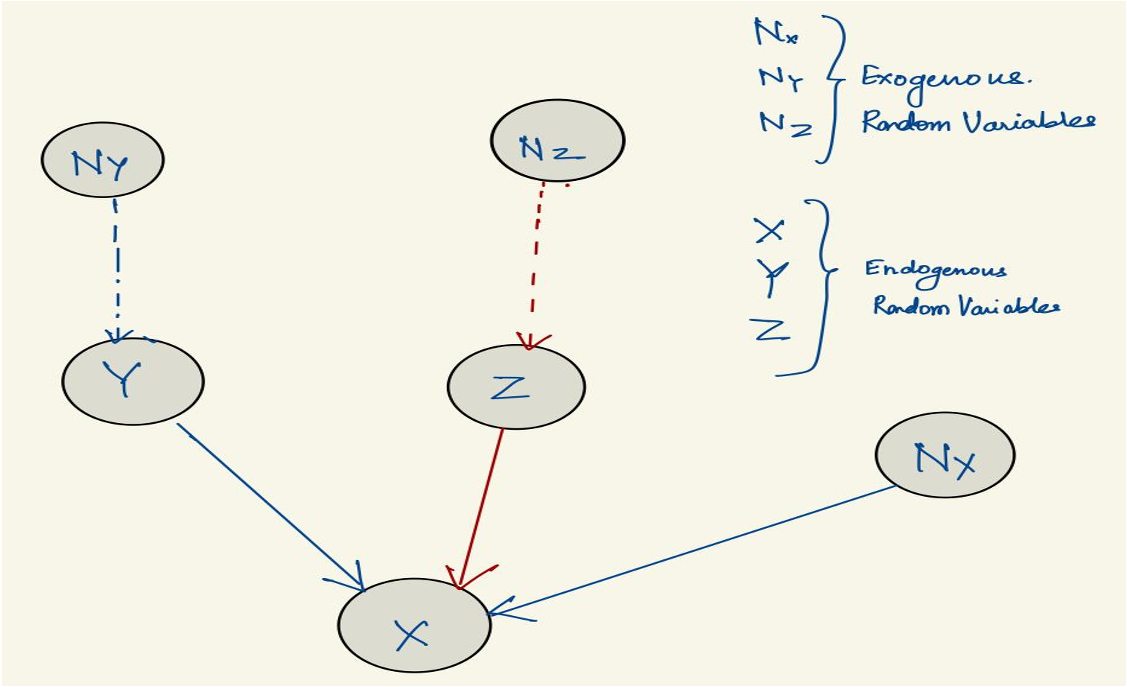 Nx
NY
Exogenous.
NZ
Random Variables
NY
NZ
X
Y
Endogenous
Random Variables
Z
Y
Z
NX
X